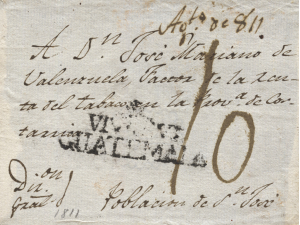 Agto de 811
A Dn José Mariano de
Valenzuela Factor de la ren-
ta del tabaco en la Prova de Cos-
tarrica
10
GUATEMALA
Dion
Gral
1811
Poblacion de Sn José